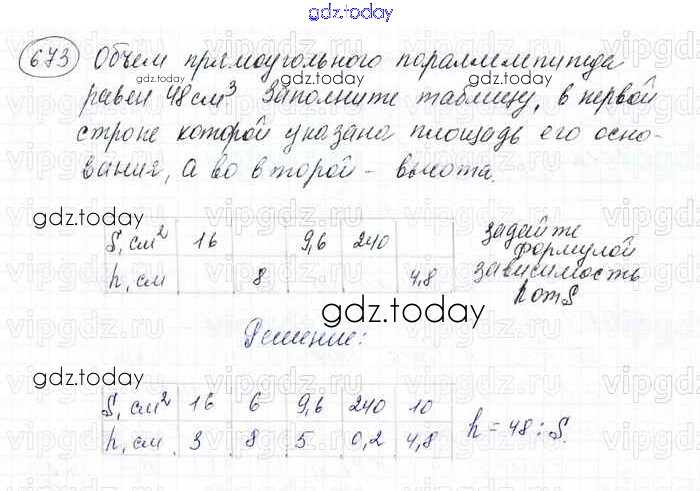 gdz.today
673 Объем прямоугольного параллелепипеда
gdz.today gdz.today
равен 48 см³ Заполните таблицу, в первой
строке которой указана площадь его осно-
вания, а во второй - высота.
gdz.today gdz.today
S, см² 16 9,6 240
h, см 8 4,8
задайте
формулой
зависимость
h от S
gdz.today
Решение:
gdz.today gdz.today
S, см² 16 6 9,6 240 10
h, см 3 8 5 0,2 4,8
h = 48 : S.